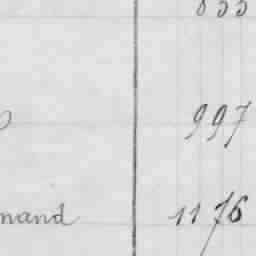 997
mand 1176